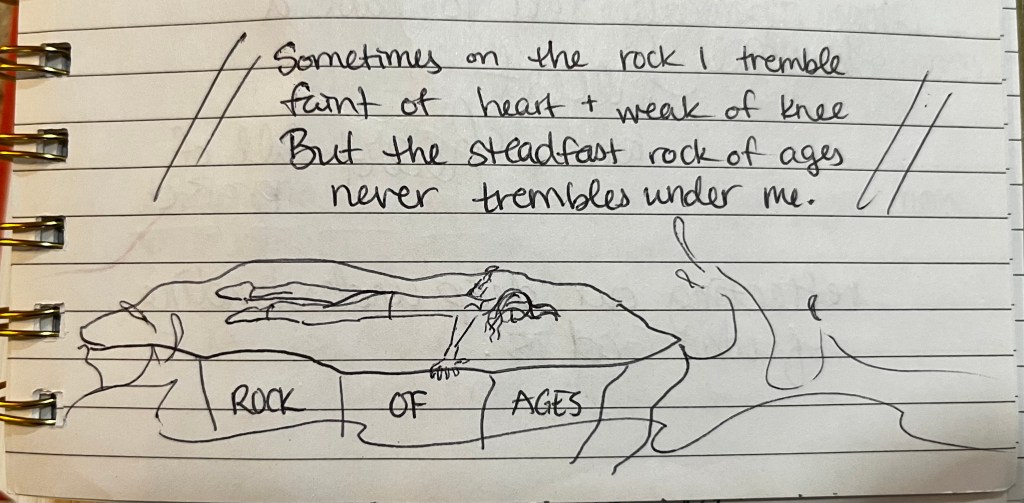 Sometimes on the rock I tremble
faint of heart + weak of knee
But the steadfast rock of ages
never trembles under me.
ROCK OF AGES